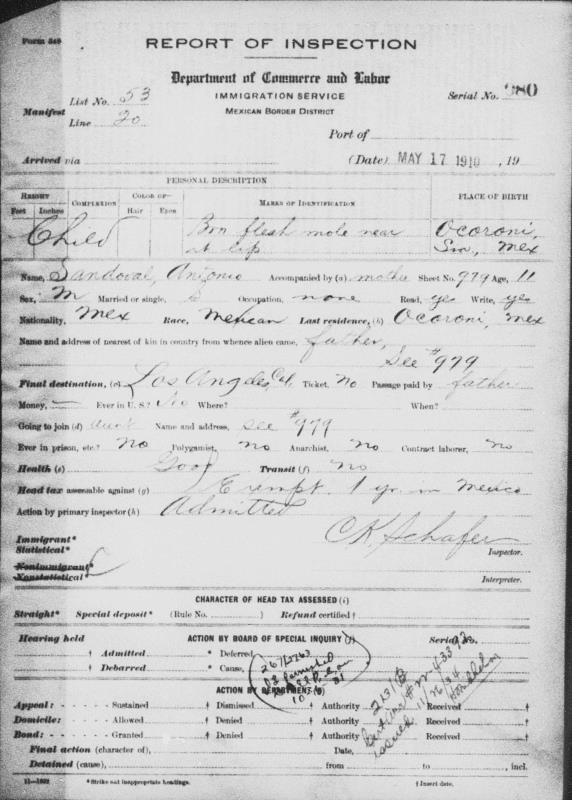 Form 548
REPORT OF INSPECTION
Department of Commerce and Labor
IMMIGRATION SERVICE
MEXICAN BORDER DISTRICT
Manifest List No. 53
Line 20
Serial No. 980
Port of
Arrived via (Date) MAY 17 1910, 19
PERSONAL DESCRIPTION
HEIGHT COMPLEXION COLOR OF— MARKS OF IDENTIFICATION PLACE OF BIRTH
Feet Inches Hair Eyes
Child Brn flesh mole near Ocoroni,
rt lip Sin, Mex
Name, Sandoval, Antonio Accompanied by (a) mother Sheet No. 979 Age, 11
Sex, M Married or single, S Occupation, none Read, yes Write, yes
Nationality, Mex Race, Mexican Last residence, (b) Ocoroni, Mex
Name and address of nearest of kin in country from whence alien came, father,
See #979
Final destination, (c) Los Angeles, Cal, Ticket, No Passage paid by father
Money, — Ever in U. S.? No Where? When?
Going to join (d) aunt Name and address, see #979
Ever in prison, etc.? No Polygamist, no Anarchist, No Contract laborer, no
Health (e) Good Transit (f) No
Head tax assessable against (g) Exempt. 1 yr. in Mexico
Action by primary inspector (h) Admitted
Immigrant*
Statistical*
C K Schafer
Inspector.
Nonimmigrant*
Nonstatistical*
Interpreter.
CHARACTER OF HEAD TAX ASSESSED (i)
Straight* Special deposit* (Rule No. ) Refund certified †
Hearing held ACTION BY BOARD OF SPECIAL INQUIRY (j) Serial No.
† Admitted † Deferred
† Debarred † Cause,
ACTION BY DEPARTMENT (k)
Appeal: Sustained † Dismissed † Authority Received †
Domicile: Allowed † Denied † Authority Received †
Bond: Granted † Denied † Authority Received †
Final action (character of), Date,
Detained (cause), from to , incl.
11—1892 *Strike out inappropriate headings. † Insert date.